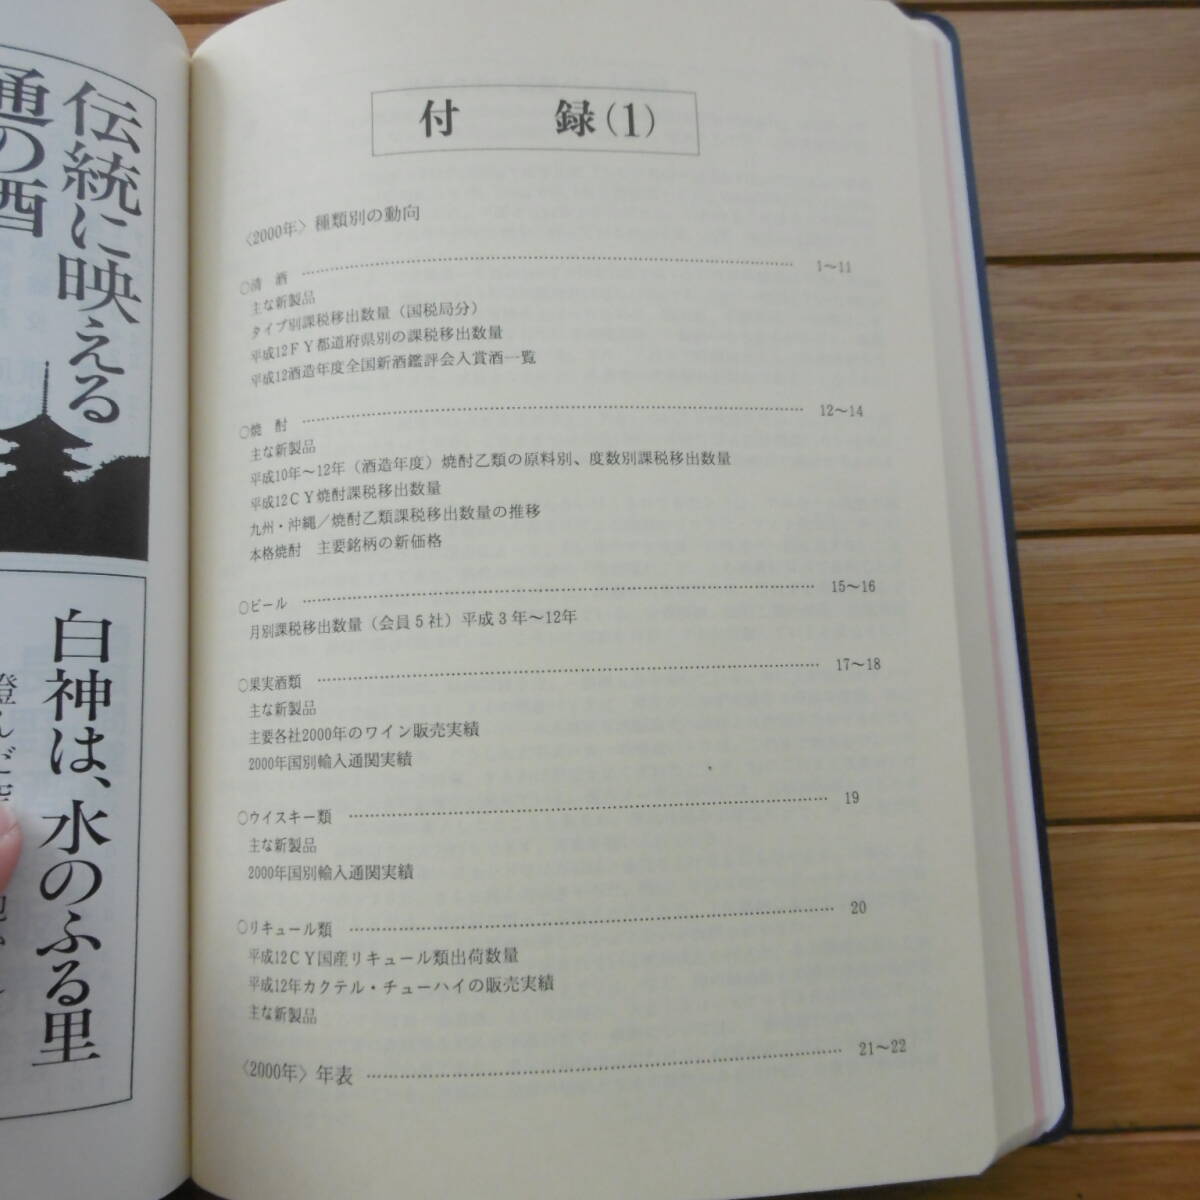 付　録(1)
〈2000年〉種類別の動向
○清　酒 …… 1～11
主な新製品
タイプ別課税移出数量（国税局分）
平成12ＦＹ都道府県別の課税移出数量
平成12酒造年度全国新酒鑑評会入賞酒一覧
○焼　酎 …… 12～14
主な新製品
平成10年～12年（酒造年度）焼酎乙類の原料別、度数別課税移出数量
平成12ＣＹ焼酎課税移出数量
九州・沖縄／焼酎乙類課税移出数量の推移
本格焼酎　主要銘柄の新価格
○ビール …… 15～16
月別課税移出数量（会員５社）平成３年～12年
○果実酒類 …… 17～18
主な新製品
主要各社2000年のワイン販売実績
2000年国別輸入通関実績
○ウイスキー類 …… 19
主な新製品
2000年国別輸入通関実績
○リキュール類 …… 20
平成12ＣＹ国産リキュール類出荷数量
平成12年カクテル・チューハイの販売実績
主な新製品
〈2000年〉年表 …… 21～22
伝統に映える
通の酒
白神は、水のふる里